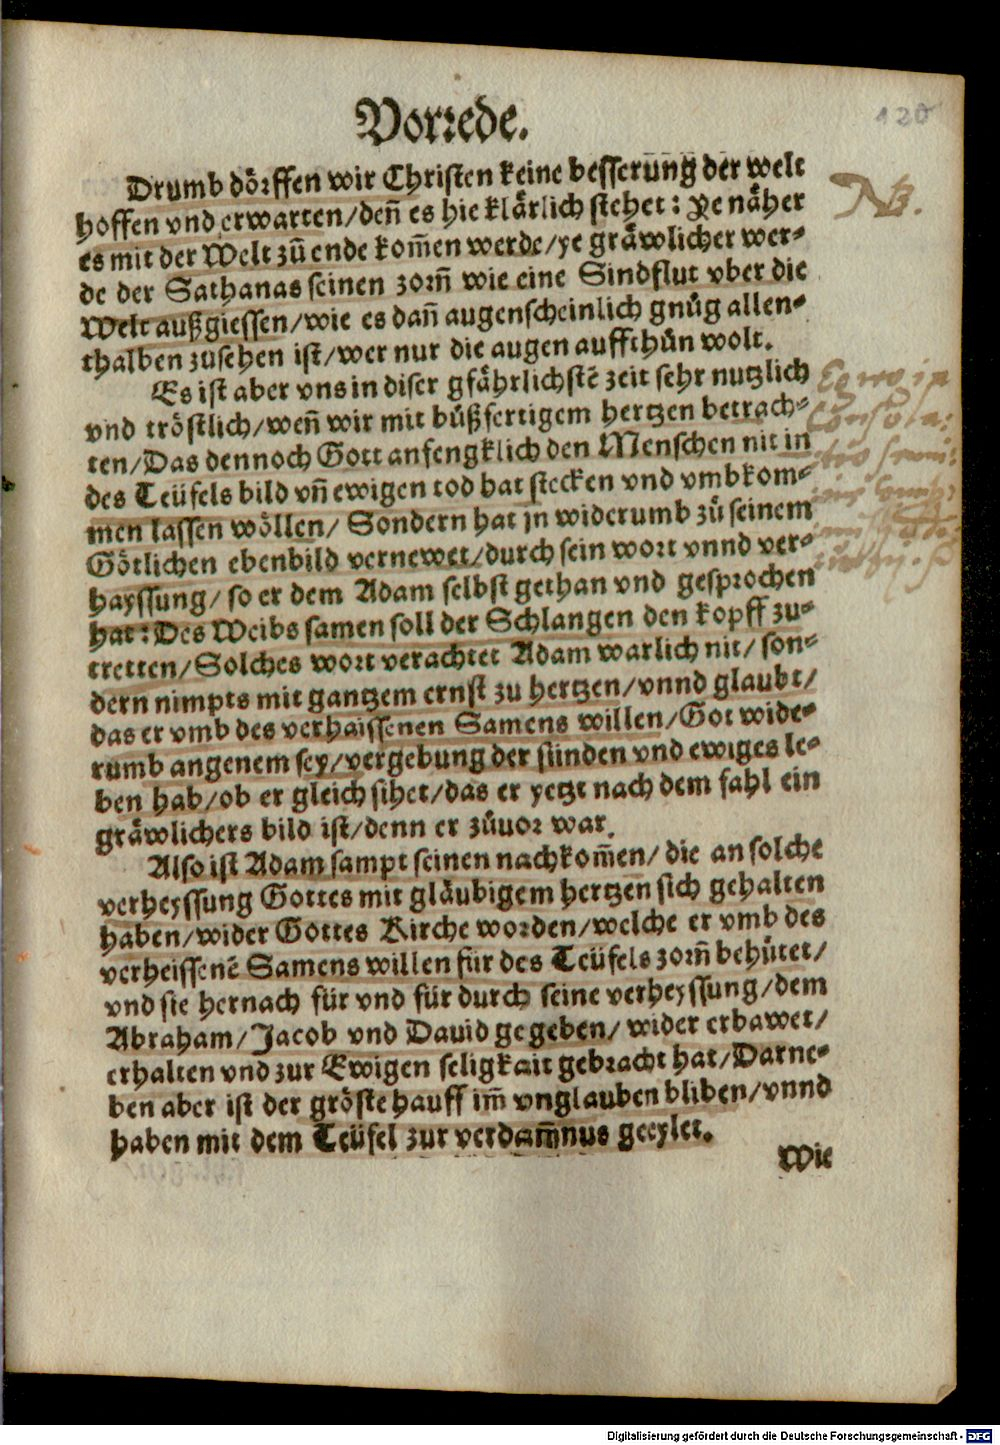 Vorrede.
120
Drumb dörffen wir Christen keine besserung der welt
NB.
hoffen vnd erwarten/den̄ es hie klärlich stehet: Ye näher
es mit der Welt zů ende kom̄en werde/ye gräwlicher wer-
de der Sathanas seinen zorn̄ wie eine Sindflut vber die
Welt außgiessen/wie es dan̄ augenscheinlich gnůg allen-
thalben zusehen ist/wer nur die augen auffthůn wolt.
Es ist aber vns in diser gfährlichstē zeit sehr nutzlich
vnd tröstlich/wen̄ wir mit bůßfertigem hertzen betrach-
ten/Das dennoch Gott anfengklich den Menschen nit in
des Teüfels bild vn̄ ewigen tod hat stecken vnd vmbkom-
men lassen wöllen/ Sondern hat jn widerumb zů seinem
Götlichen ebenbild vernewet/durch sein wort vnnd ver-
hayssung/ so er dem Adam selbst gethan vnd gesprochen
hat: Des Weibs samen soll der Schlangen den kopff zu-
tretten/Solches wort verachtet Adam warlich nit/ son-
dern nimpts mit gantzem ernst zu hertzen/vnnd glaubt/
das er vmb des verhaissenen Samens willen/Got wide-
rumb angenem sey/vergebung der sünden vnd ewiges le-
ben hab/ob er gleich sihet/das er yetzt nach dem fahl ein
gräwlichers bild ist/denn er zůuor war.
Also ist Adam sampt seinen nachkom̄en/ die an solche
verheyssung Gottes mit gläubigem hertzen sich gehalten
haben/wider Gottes Kirche worden/welche er vmb des
verheissenē Samens willen für des Teüfels zorn̄ behůtet/
vnd sie hernach für vnd für durch seine verheyssung/dem
Abraham/Jacob vnd Dauid gegeben/ wider erbawet/
erhalten vnd zur Ewigen seligkait gebracht hat/Darne-
ben aber ist der gröste hauff im̄ vnglauben bliben/vnnd
haben mit dem Teüfel zur verdam̄nus geeylet.
Wie
Digitalisierung gefördert durch die Deutsche Forschungsgemeinschaft - DFG